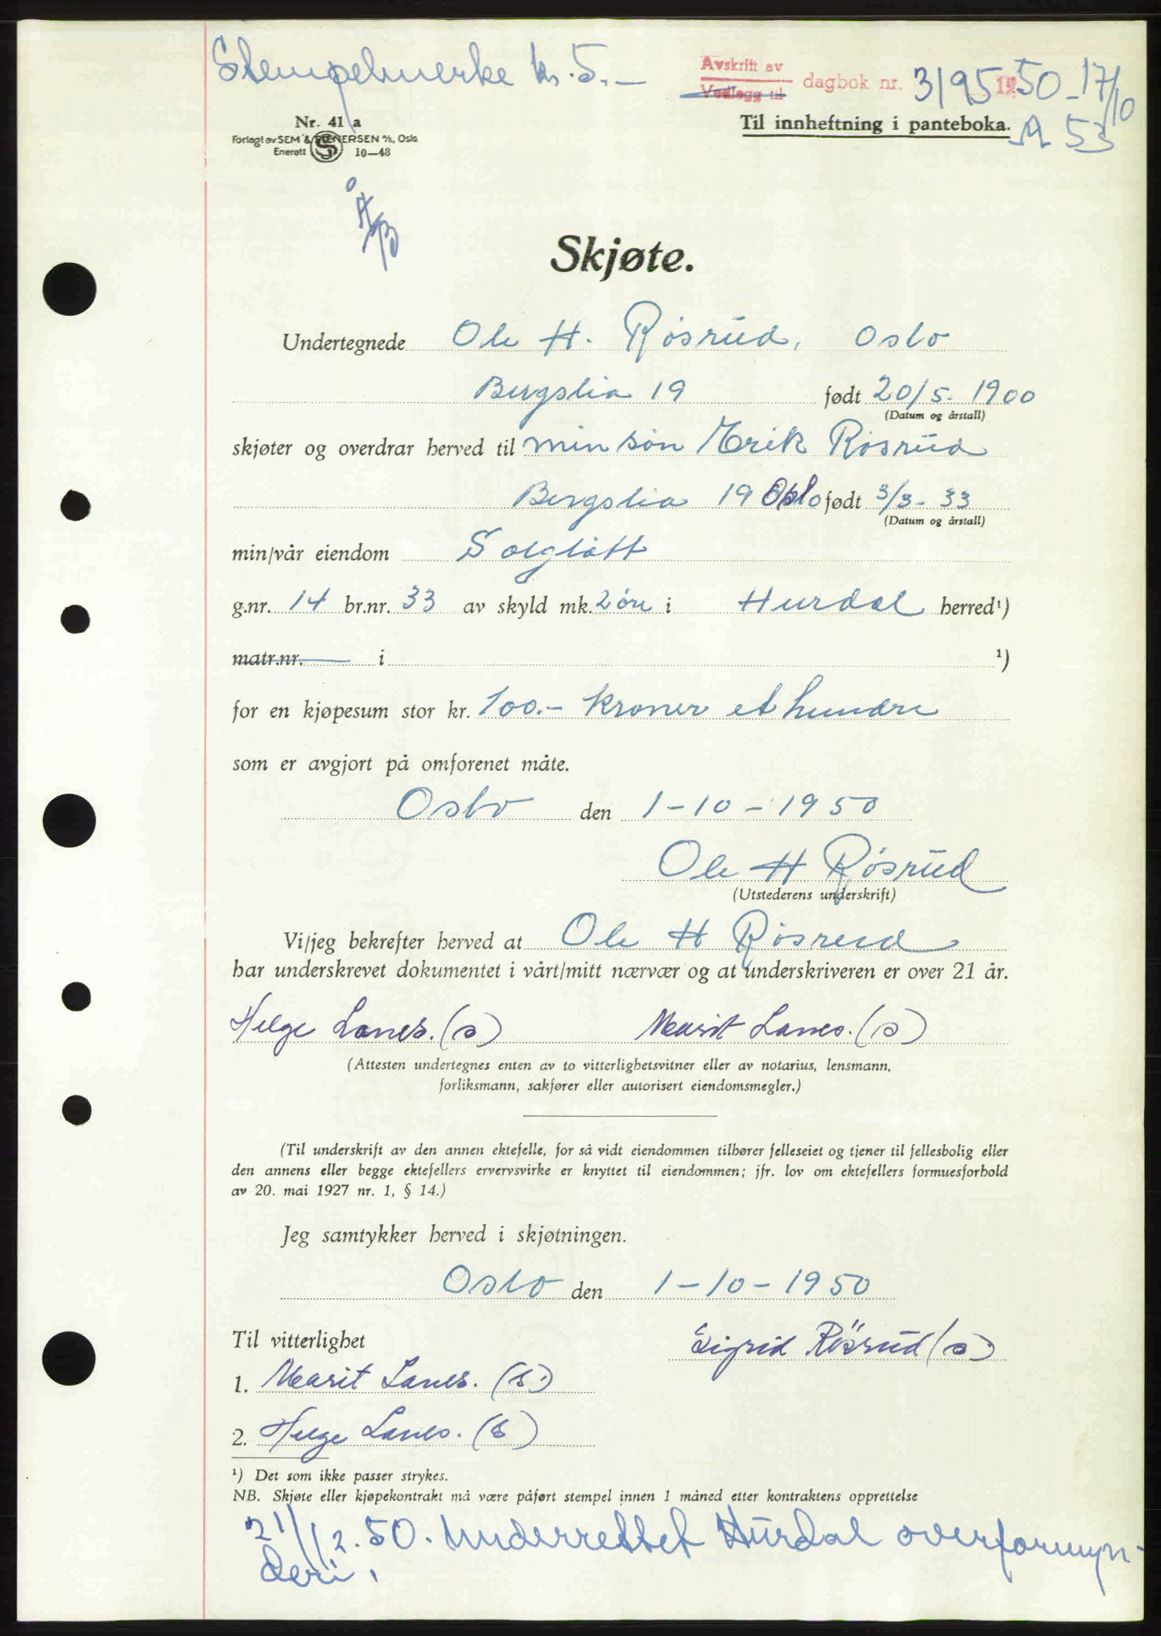 Stempelmerke kr. 5.—
Avskrift av
Vedlegg til
dagbok nr. 3195 1950 - 17/10
Til innheftning i panteboka. A 53
Nr. 41 a
Forlagt av SEM & STENERSEN A/S, Oslo
Enerett S 10—48
Skjøte.
Undertegnede Ole H. Røsrud, Oslo
Bergslia 19 født 20/5-1900
(Datum og årstall)
skjøter og overdrar herved til min søn Erik Røsrud
Bergslia 19 Oslo født 3/3-33
(Datum og årstall)
min/vår eiendom Solglått
g.nr. 14 br.nr. 33 av skyld mk. 2 øre i Hurdal herred¹)
matr.nr. i ¹)
for en kjøpesum stor kr. 100.- kroner et hundre
som er avgjort på omforenet måte.
Oslo den 1-10-1950
Ole H Røsrud
(Utstederens underskrift)
Vi/jeg bekrefter herved at Ole H Røsrud
har underskrevet dokumentet i vårt/mitt nærvær og at underskriveren er over 21 år.
Helge Lanes. (s) Marit Lanes. (s)
(Attesten undertegnes enten av to vitterlighetsvitner eller av notarius, lensmann,
forliksmann, sakfører eller autorisert eiendomsmegler.)
(Til underskrift av den annen ektefelle, for så vidt eiendommen tilhører felleseiet og tjener til fellesbolig eller
den annens eller begge ektefellers ervervsvirke er knyttet til eiendommen; jfr. lov om ektefellers formuesforhold
av 20. mai 1927 nr. 1, § 14.)
Jeg samtykker herved i skjøtningen.
Oslo den 1-10-1950
Til vitterlighet
Sigrid Røsrud (s)
1. Marit Lanes. (s)
2. Helge Lanes. (s)
¹) Det som ikke passer strykes.
NB. Skjøte eller kjøpekontrakt må være påført stempel innen 1 måned etter kontraktens opprettelse
21/12.50. Underrettet Hurdal overformyn-
deri.